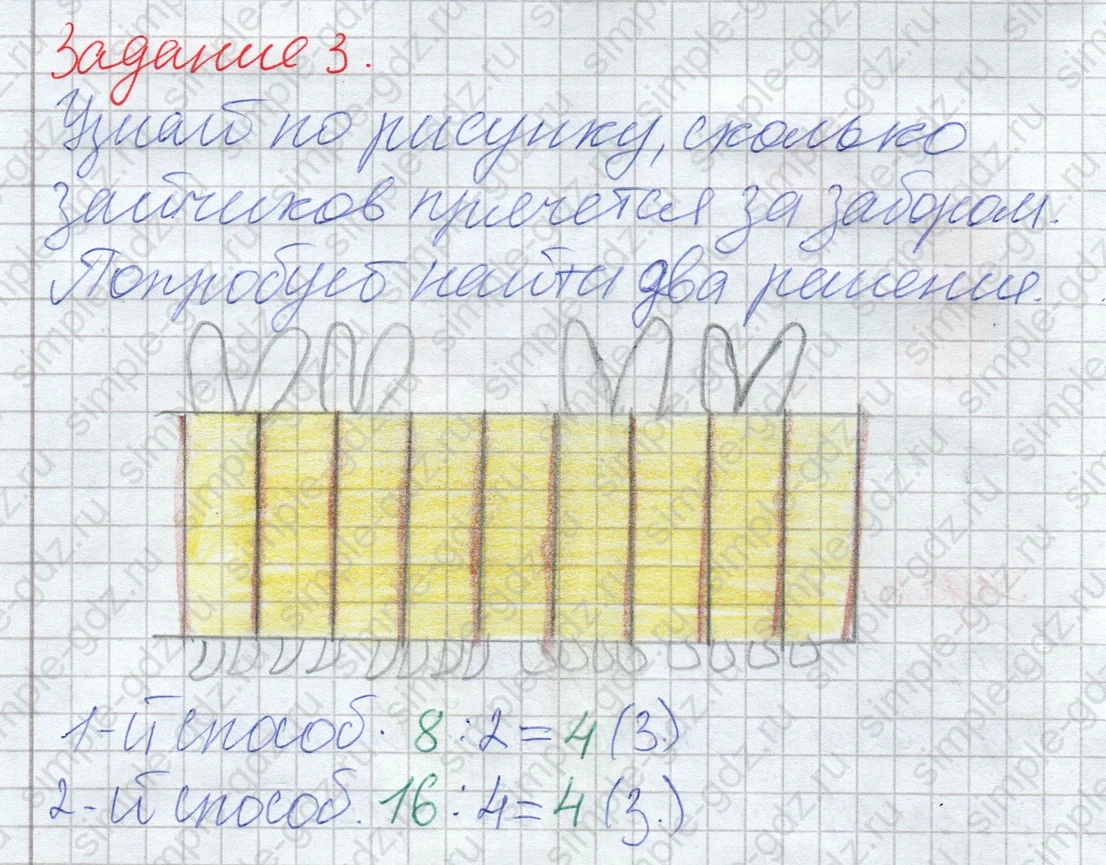 Задание 3.
Узнай по рисунку, сколько
зайчиков прячется за забором.
Попробуй найти два решения.
1-й способ. 8 : 2 = 4 (з.)
2-й способ. 16 : 4 = 4 (з.)
simple-gdz.ru